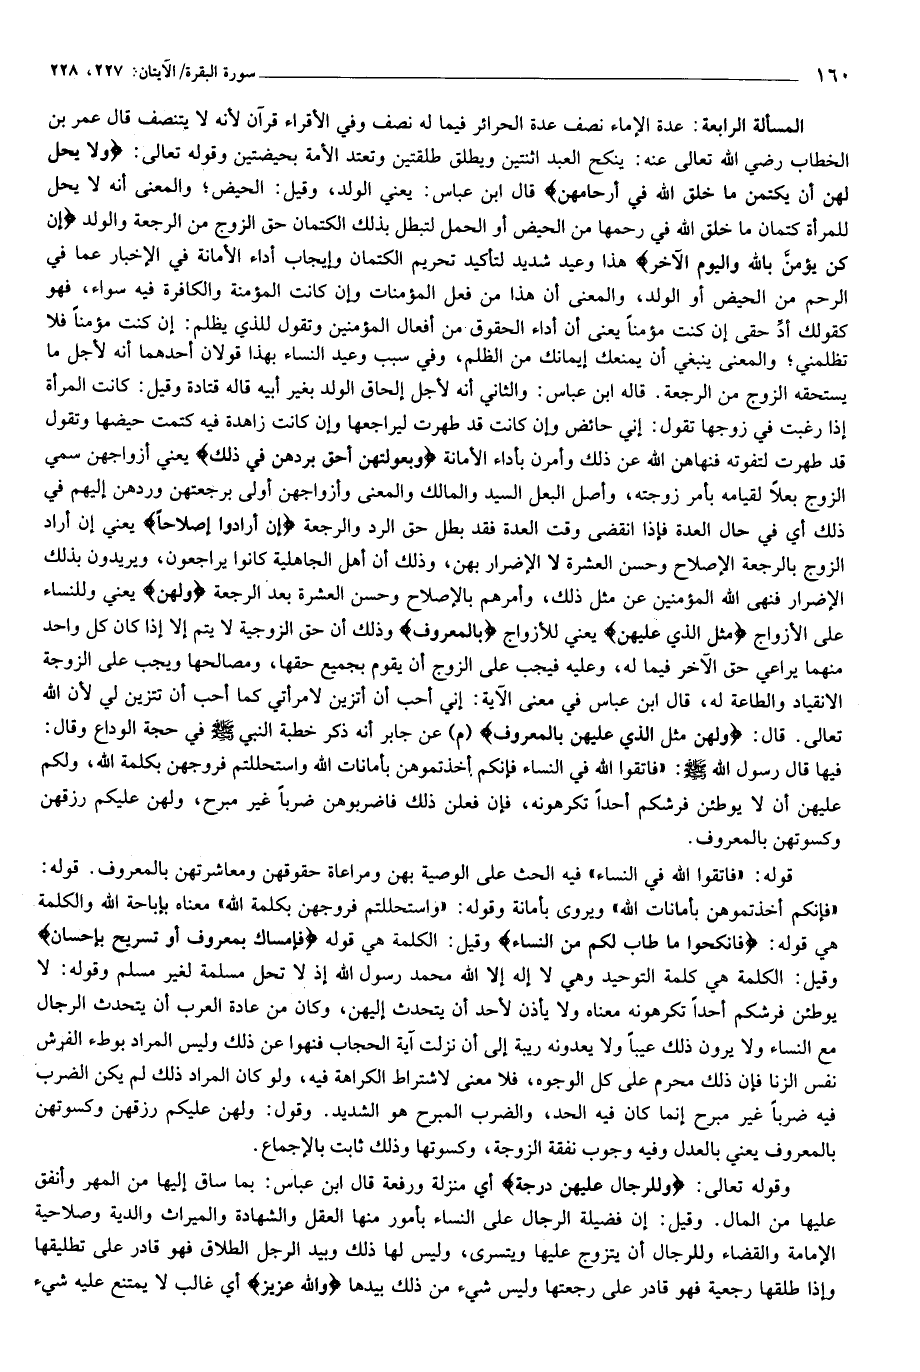 ١٦٠ سورة البقرة/ الآيتان: ٢٢٧، ٢٢٨
المسألة الرابعة: عدة الإماء نصف عدة الحرائر فيما له نصف وفي الأقراء قرآن لأنه لا يتنصف قال عمر بن
الخطاب رضي الله تعالى عنه: ينكح العبد اثنتين ويطلق طلقتين وتعتد الأمة بحيضتين وقوله تعالى: ﴿ولا يحل
لهن أن يكتمن ما خلق الله في أرحامهن﴾ قال ابن عباس: يعني الولد، وقيل: الحيض؛ والمعنى أنه لا يحل
للمرأة كتمان ما خلق الله في رحمها من الحيض أو الحمل لتبطل بذلك الكتمان حق الزوج من الرجعة والولد ﴿إن
كن يؤمنَّ بالله واليوم الآخر﴾ هذا وعيد شديد لتأكيد تحريم الكتمان وإيجاب أداء الأمانة في الإخبار عما في
الرحم من الحيض أو الولد، والمعنى أن هذا من فعل المؤمنات وإن كانت المؤمنة والكافرة فيه سواء، فهو
كقولك أدِّ حقى إن كنت مؤمناً يعنى أن أداء الحقوق من أفعال المؤمنين وتقول للذي يظلم: إن كنت مؤمناً فلا
تظلمني؛ والمعنى ينبغي أن يمنعك إيمانك من الظلم، وفي سبب وعيد النساء بهذا قولان أحدهما أنه لأجل ما
يستحقه الزوج من الرجعة. قاله ابن عباس: والثاني أنه لأجل إلحاق الولد بغير أبيه قاله قتادة وقيل: كانت المرأة
إذا رغبت في زوجها تقول: إني حائض وإن كانت قد طهرت ليراجعها وإن كانت زاهدة فيه كتمت حيضها وتقول
قد طهرت لتفوته فنهاهن الله عن ذلك وأمرن بأداء الأمانة ﴿وبعولتهن أحق بردهن في ذلك﴾ يعني أزواجهن سمي
الزوج بعلاً لقيامه بأمر زوجته، وأصل البعل السيد والمالك والمعنى وأزواجهن أولى برجعتهن وردهن إليهم في
ذلك أي في حال العدة فإذا انقضى وقت العدة فقد بطل حق الرد والرجعة ﴿إن أرادوا إصلاحاً﴾ يعني إن أراد
الزوج بالرجعة الإصلاح وحسن العشرة لا الإضرار بهن، وذلك أن أهل الجاهلية كانوا يراجعون، ويريدون بذلك
الإضرار فنهى الله المؤمنين عن مثل ذلك، وأمرهم بالإصلاح وحسن العشرة بعد الرجعة ﴿ولهن﴾ يعني وللنساء
على الأزواج ﴿مثل الذي عليهن﴾ يعني للأزواج ﴿بالمعروف﴾ وذلك أن حق الزوجية لا يتم إلا إذا كان كل واحد
منهما يراعي حق الآخر فيما له، وعليه فيجب على الزوج أن يقوم بجميع حقها، ومصالحها ويجب على الزوجة
الانقياد والطاعة له، قال ابن عباس في معنى الآية: إني أحب أن أتزين لامرأتي كما أحب أن تتزين لي لأن الله
تعالى. قال: ﴿ولهن مثل الذي عليهن بالمعروف﴾ (م) عن جابر أنه ذكر خطبة النبي ﷺ في حجة الوداع وقال:
فيها قال رسول الله ﷺ: «فاتقوا الله في النساء فإنكم أخذتموهن بأمانات الله واستحللتم فروجهن بكلمة الله، ولكم
عليهن أن لا يوطئن فرشكم أحداً تكرهونه، فإن فعلن ذلك فاضربوهن ضرباً غير مبرح، ولهن عليكم رزقهن
وكسوتهن بالمعروف.
قوله: «فاتقوا الله في النساء» فيه الحث على الوصية بهن ومراعاة حقوقهن ومعاشرتهن بالمعروف. قوله:
«فإنكم أخذتموهن بأمانات الله» ويروى بأمانة وقوله: «واستحللتم فروجهن بكلمة الله» معناه بإباحة الله والكلمة
هي قوله: ﴿فانكحوا ما طاب لكم من النساء﴾ وقيل: الكلمة هي قوله ﴿فإمساك بمعروف أو تسريح بإحسان﴾
وقيل: الكلمة هي كلمة التوحيد وهي لا إله إلا الله محمد رسول الله إذ لا تحل مسلمة لغير مسلم وقوله: لا
يوطئن فرشكم أحداً تكرهونه معناه ولا يأذن لأحد أن يتحدث إليهن، وكان من عادة العرب أن يتحدث الرجال
مع النساء ولا يرون ذلك عيباً ولا يعدونه ريبة إلى أن نزلت آية الحجاب فنهوا عن ذلك وليس المراد بوطء الفرش
نفس الزنا فإن ذلك محرم على كل الوجوه، فلا معنى لاشتراط الكراهة فيه، ولو كان المراد ذلك لم يكن الضرب
فيه ضرباً غير مبرح إنما كان فيه الحد، والضرب المبرح هو الشديد. وقول: ولهن عليكم رزقهن وكسوتهن
بالمعروف يعني بالعدل وفيه وجوب نفقة الزوجة، وكسوتها وذلك ثابت بالإجماع.
وقوله تعالى: ﴿وللرجال عليهن درجة﴾ أي منزلة ورفعة قال ابن عباس: بما ساق إليها من المهر وأنفق
عليها من المال. وقيل: إن فضيلة الرجال على النساء بأمور منها العقل والشهادة والميراث والدية وصلاحية
الإمامة والقضاء وللرجال أن يتزوج عليها ويتسرى، وليس لها ذلك وبيد الرجل الطلاق فهو قادر على تطليقها
وإذا طلقها رجعية فهو قادر على رجعتها وليس شيء من ذلك بيدها ﴿والله عزيز﴾ أي غالب لا يمتنع عليه شيء